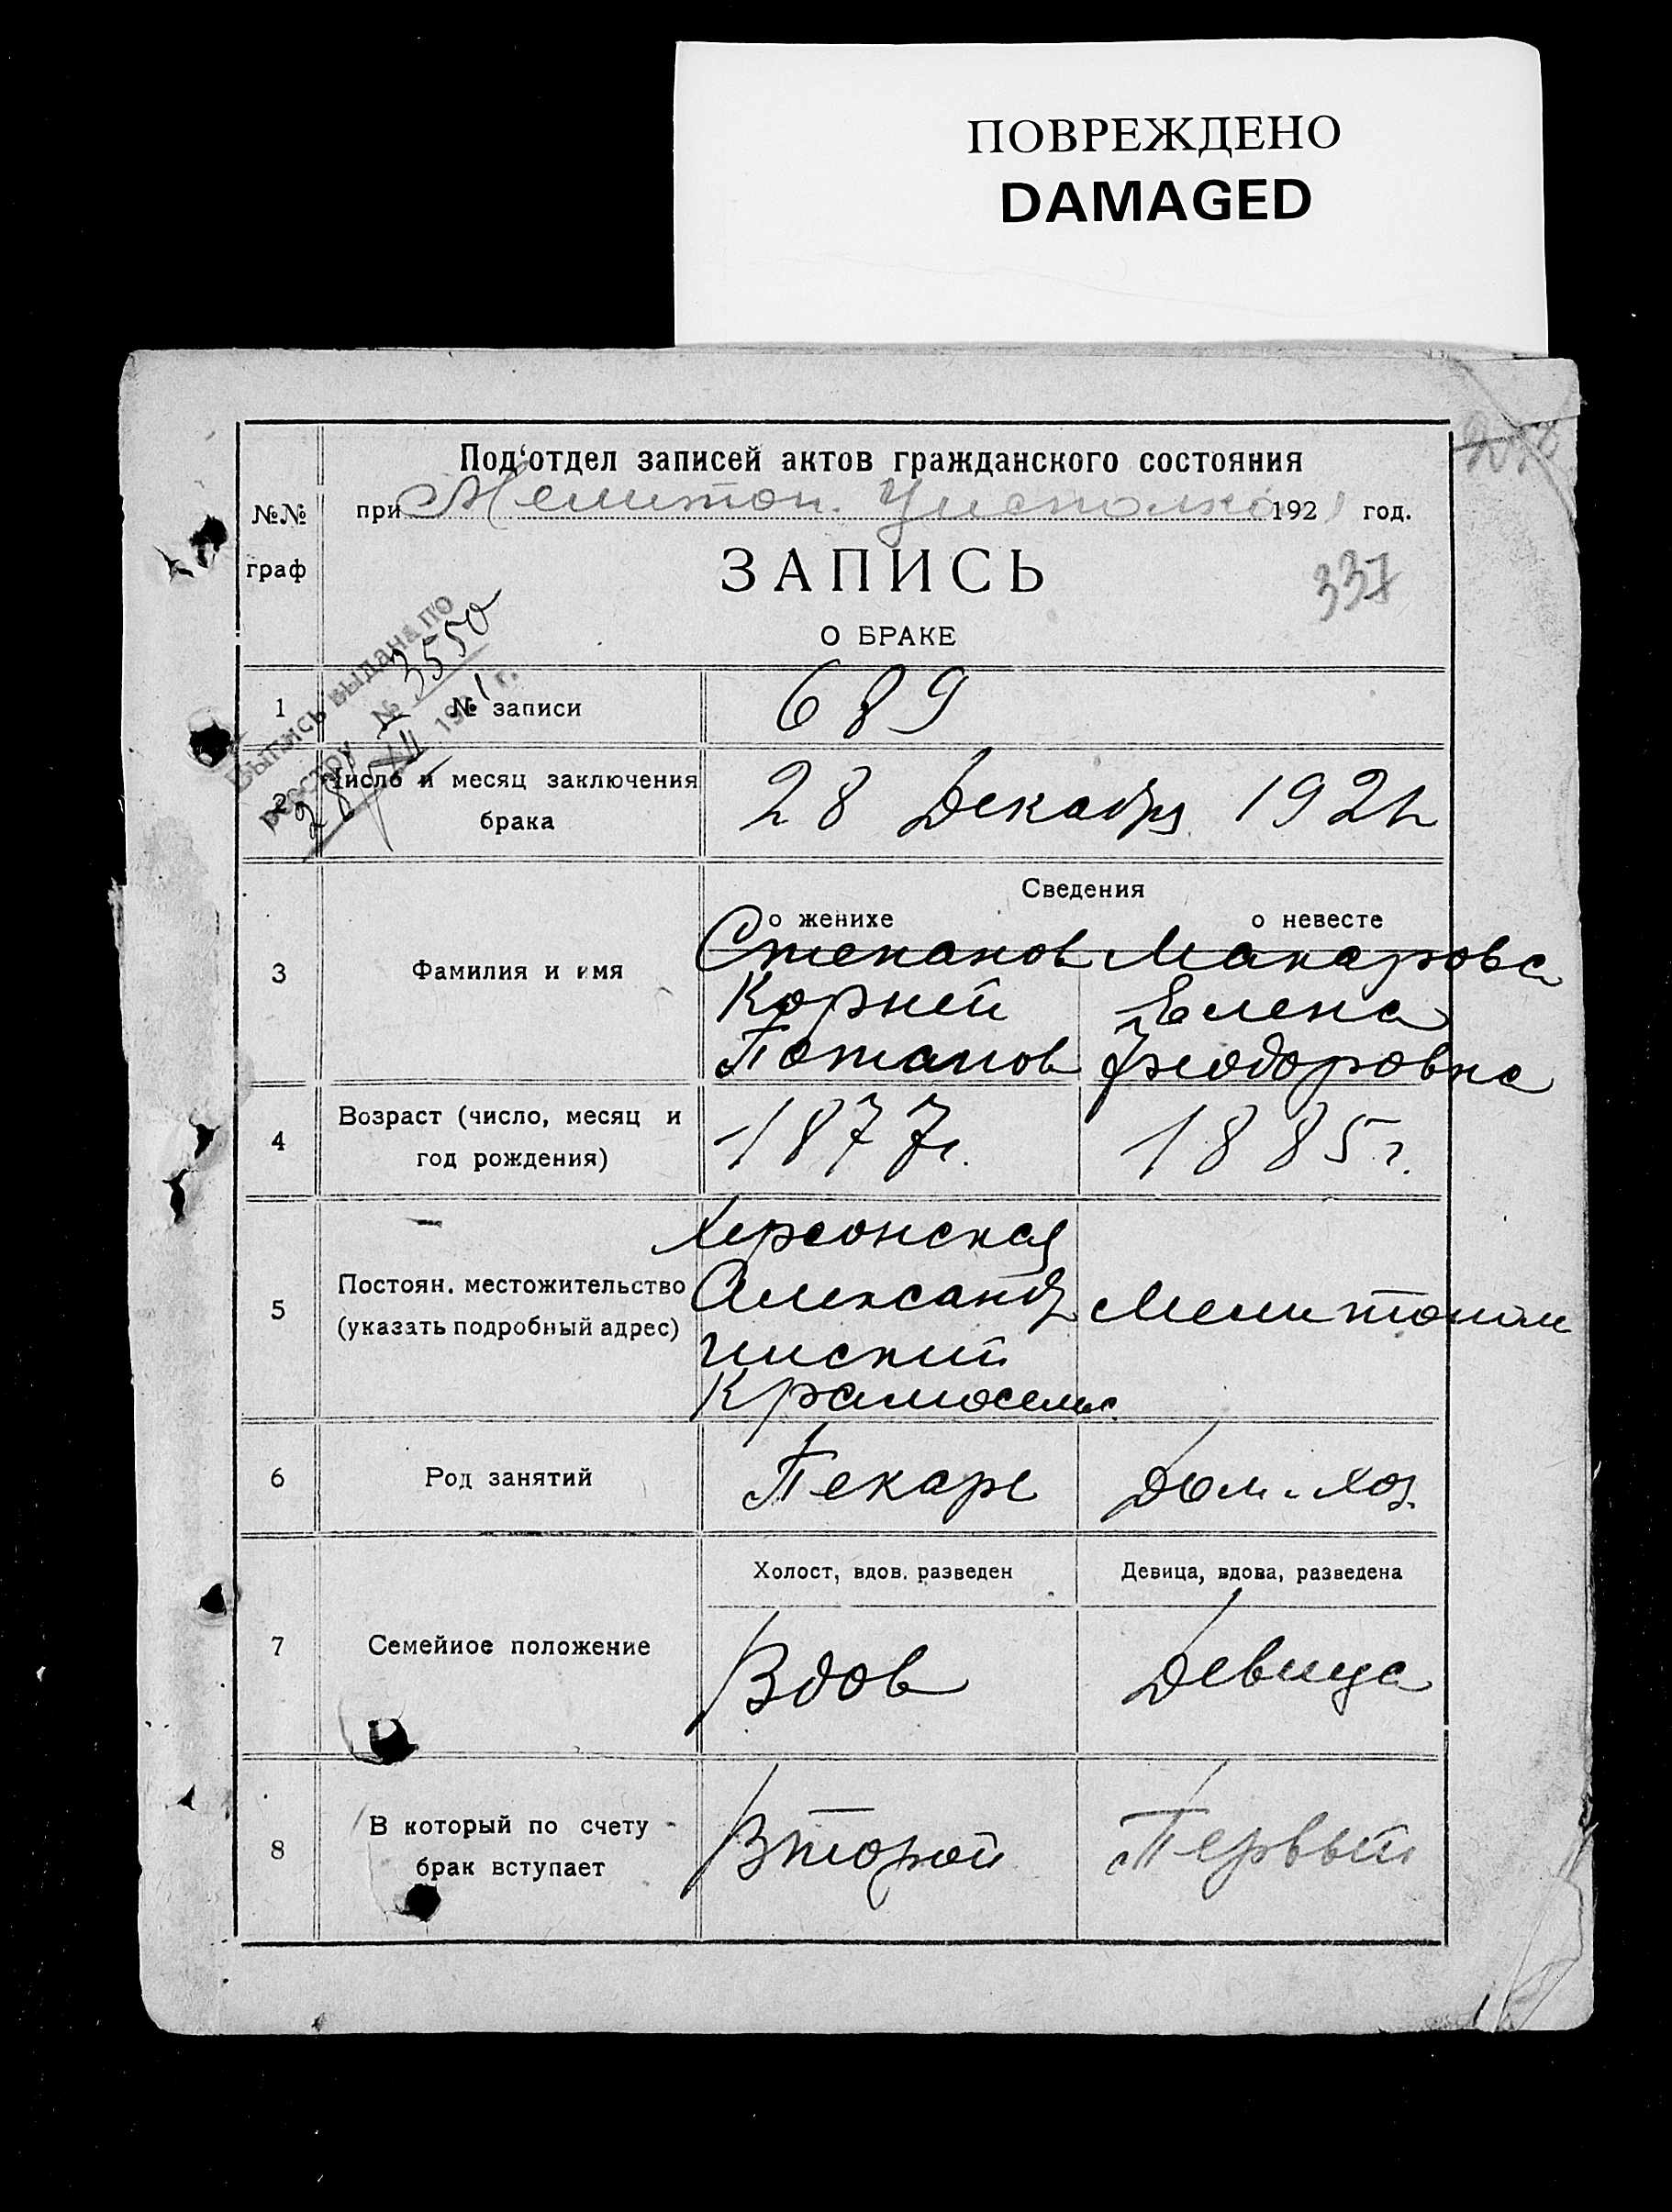 ПОВРЕЖДЕНО
DAMAGED
Под'отдел записей актов гражданского состояния
№№ граф
при Мелитоп. Уисполко 1921 год.
ЗАПИСЬ
337
О БРАКЕ
Выпись выдана по
реестру № 3550
28/XII 1921 г.
1 № записи 689
2 Число и месяц заключения брака 28 Декабря 1921 г
Сведения
о женихе о невесте
3 Фамилия и имя
Степанов Макарова
Корней Елена
Потапов Феодоровна
4 Возраст (число, месяц и год рождения) 1877 г. 1885 г.
5 Постоян. местожительство (указать подробный адрес)
Херсонская
Александр Мелитополь
ийский
6 Род занятий Пекарь Дом. хоз.
Холост, вдов. разведен Девица, вдова, разведена
7 Семейное положение Вдов Девица
8 В который по счету брак вступает Второй Первый